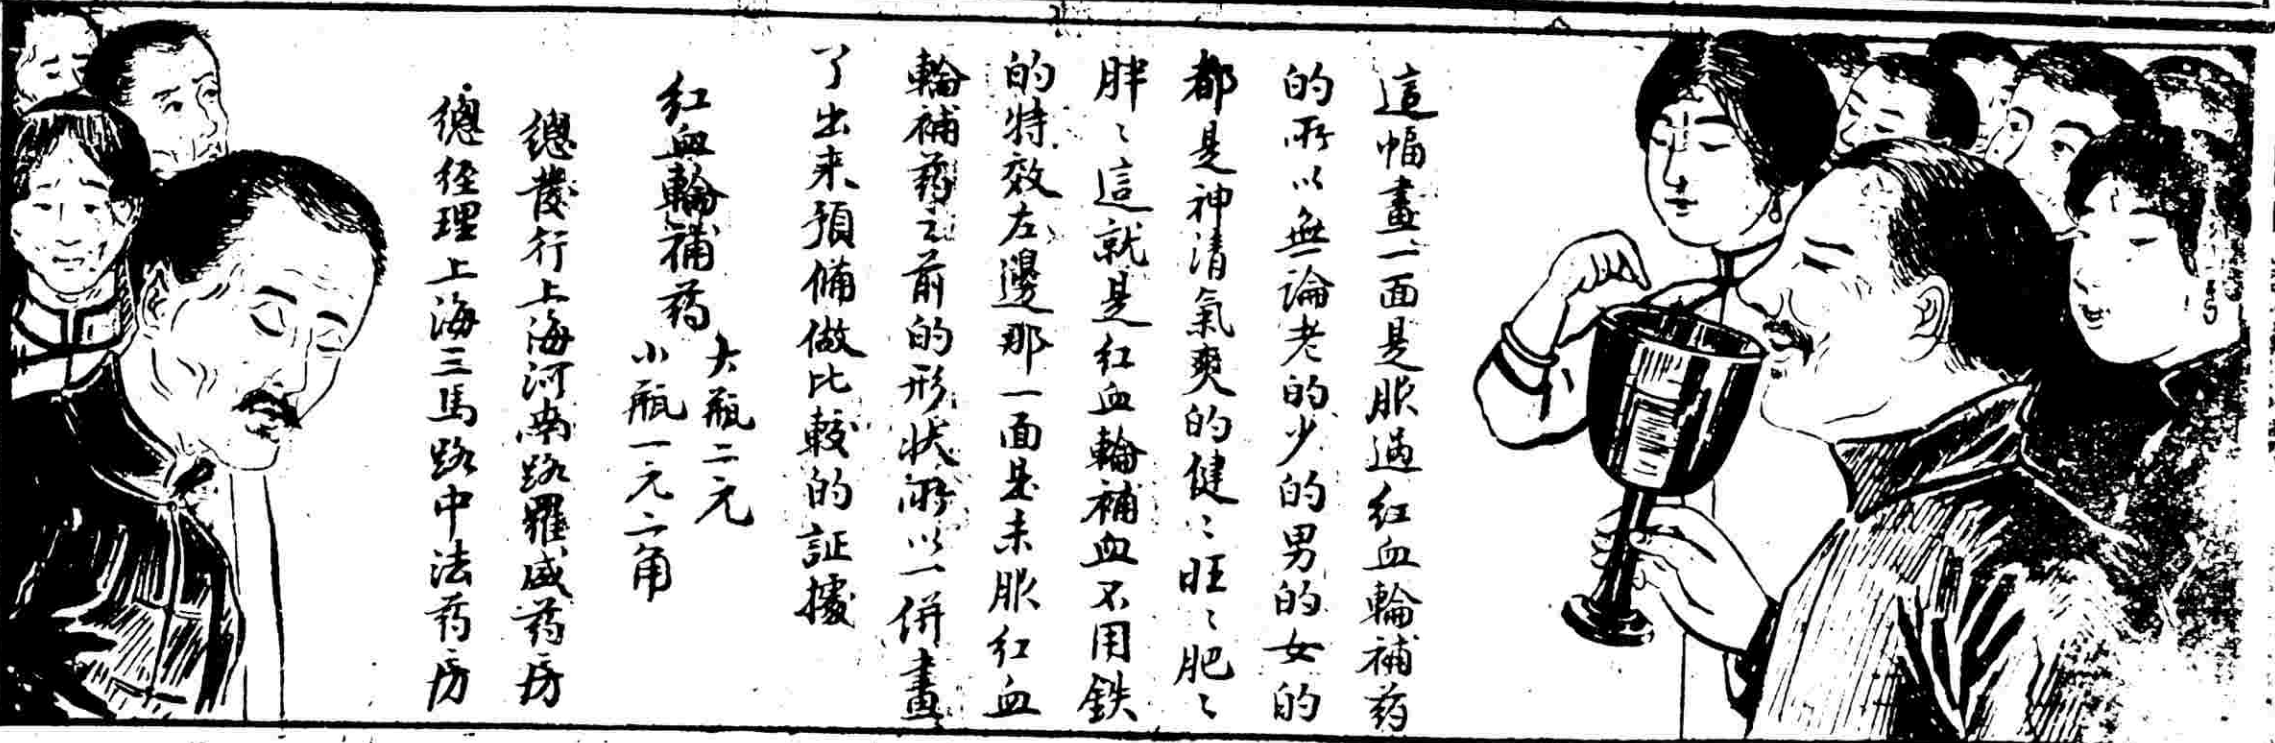 這幅畫一面是服過紅血輪補药
的所以無論老的少的男的女的
都是神清氣爽的健〻旺〻肥〻
胖〻這就是紅血輪補血不用鉄
的特效左邊那一面是未服紅血
輪補药之前的形状所以一併畫
了出来預備做比較的証據
紅血輪補药
大瓶二元
小瓶一元二角
總發行上海河南路羅威药房
總経理上海三馬路中法药房